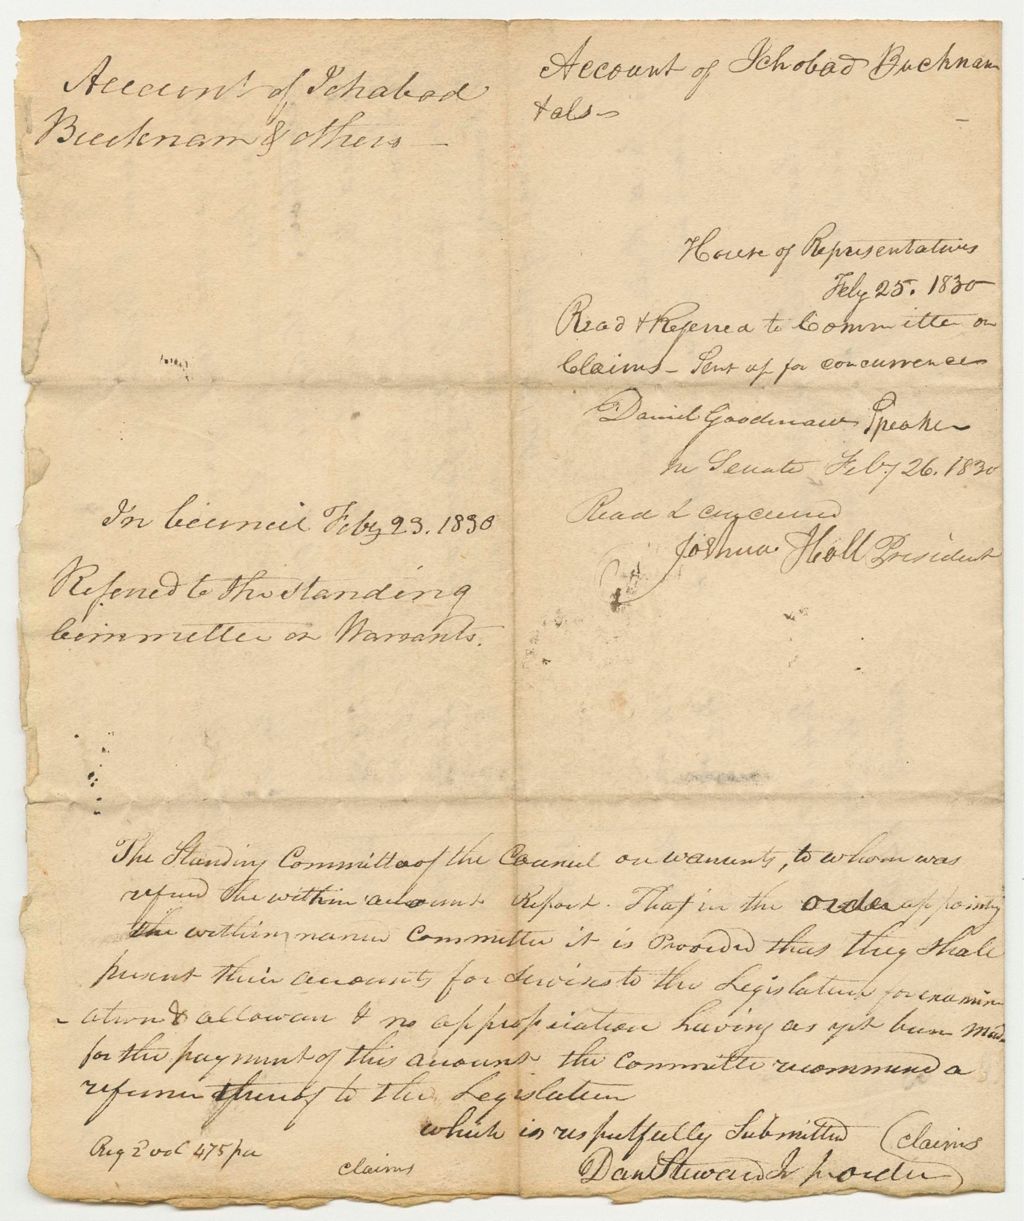 Account of Ichabod
Bucknam & others —
In Council Feby 23. 1830
Referred to the standing
Committee on Warrants.
Account of Ichobad Bucknam
& als —
House of Representatives
Feby 25. 1830
Read & Referred to Committee on
Claims — Sent up for concurrence
Daniel Goodenow Speaker
In Senate Feby 26. 1830
Read & concurred
Joshua Hall President
The Standing Committee of the Council on warrants, to whom was
referred the within account Report. That in the order appointing
the within named Committee it is Provided that they shall
present their accounts for services to the Legislature for examin
ation & allowance & no appropriation having as yet been made
for the payment of this account the committee recommend a
reference thereof to the Legislature
which is respectfully Submitted
Dan Steward Jr p order
(claims
Reg 2 vol 475 pa
claims